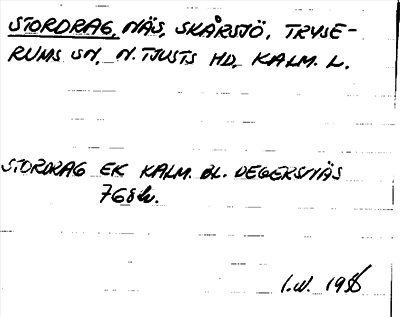 STORDRAG, NÄS, SKÅRSJÖ, TRYSE-
RUMS SN, N. TJUSTS HD, KALM. L.
STORDRAG EK KALM. BL. DEGERSNÄS
I.W. 1986